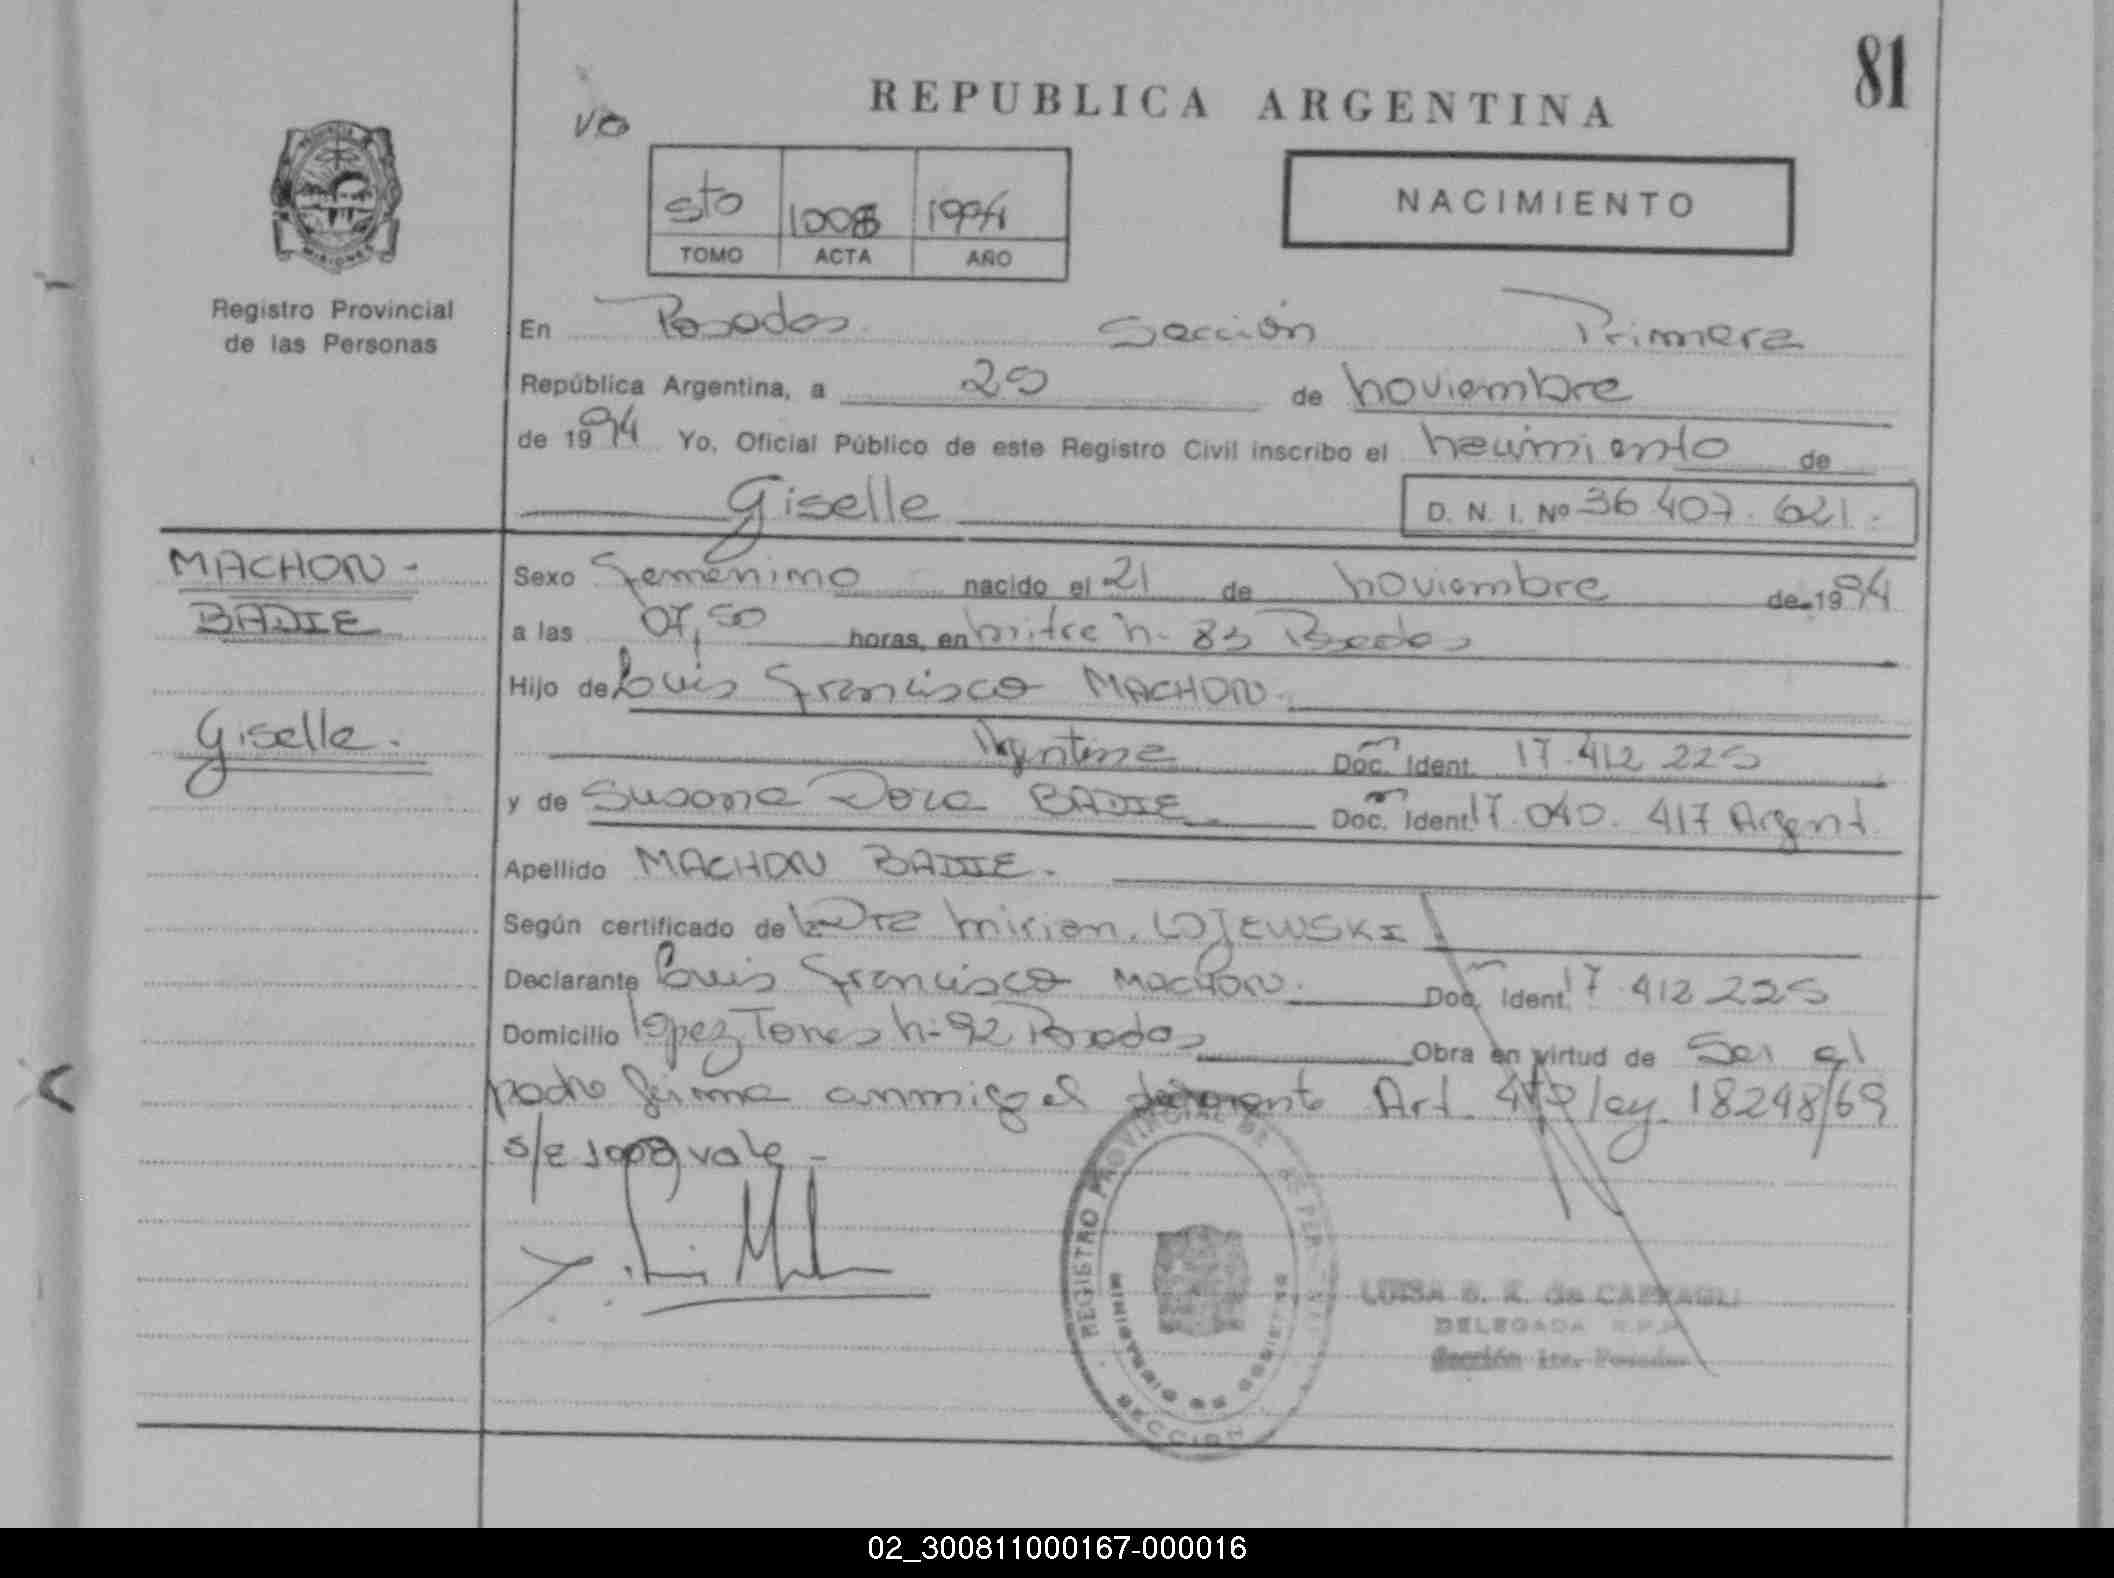 81
REPUBLICA ARGENTINA
Vo
5to 1008 1994
TOMO ACTA AÑO
NACIMIENTO
MISIONES
Registro Provincial
de las Personas
En Posadas Sección Primera
República Argentina, a 25 de noviembre
de 1994 Yo, Oficial Público de este Registro Civil inscribo el nacimiento de
Giselle
D. N. I. Nº 36.407.621.
MACHON -
BADIE
Giselle.
Sexo Femenimo nacido el 21 de noviembre de 1994
a las 07,50 horas, en mitre n- 83 Posadas
Hijo de Luis Francisco MACHON
Argentina Doc. Ident. 17.412.225
y de Susana Dora BADIE Doc. Ident. 17.040.417 Argent.
Apellido MACHON BADIE.
Según certificado de la Dra Mirian. LOJEWSKI
Declarante Luis Francisco MACHON. Doc. Ident. 17.412.225
Domicilio lopez Torres n-92 Posadas Obra en virtud de Ser el
padre firma Art. ley 18248/69
s/e 1008 vale -
REGISTRO PROVINCIAL DE
MINISTERIO DE GOBIERNO
SECCION
LUISA de
DELEGADA R.P.P.
Sección 1ra. Posadas
02_300811000167-000016